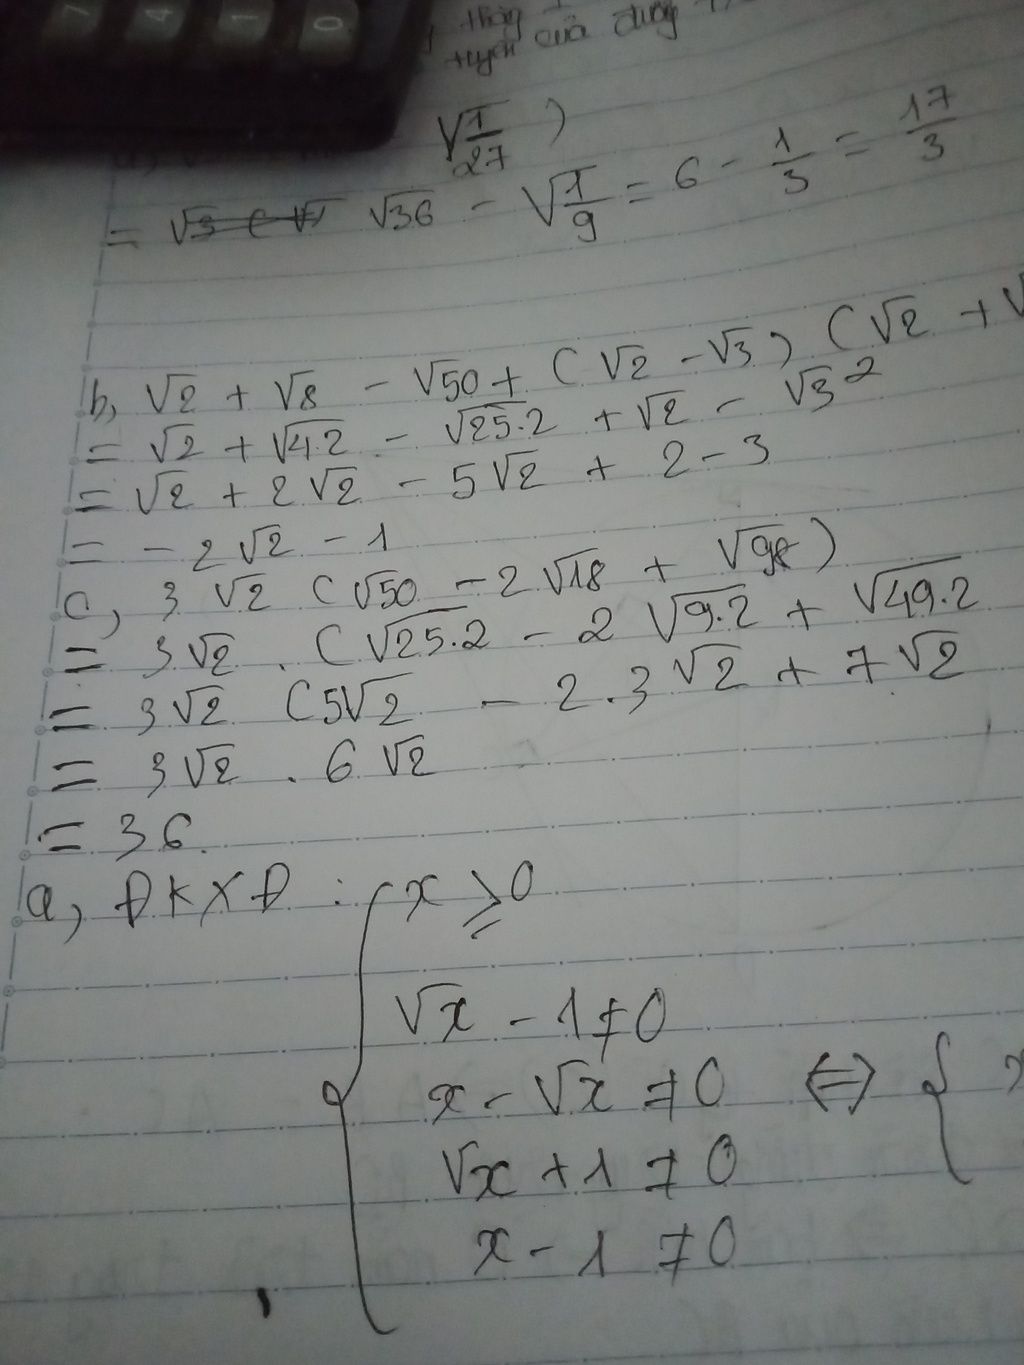 7 4 1 0
tuyến của đường
√1/27 )
= √36 - √1/9 = 6 - 1/3 = 17/3
b, √2 + √8 - √50 + (√2 - √3) (√2 + √
= √2 + √4.2 - √25.2 + √2 - √3²
= √2 + 2√2 - 5√2 + 2 - 3
= - 2√2 - 1
c, 3√2 (√50 - 2√18 + √98)
= 3√2 . (√25.2 - 2√9.2 + √49.2
= 3√2 (5√2 - 2.3√2 + 7√2
= 3√2 . 6√2
= 36
a, ĐKXĐ : { x ≥ 0
√x - 1 ≠ 0
x - √x ≠ 0 ⇔ { x
√x + 1 ≠ 0
x - 1 ≠ 0